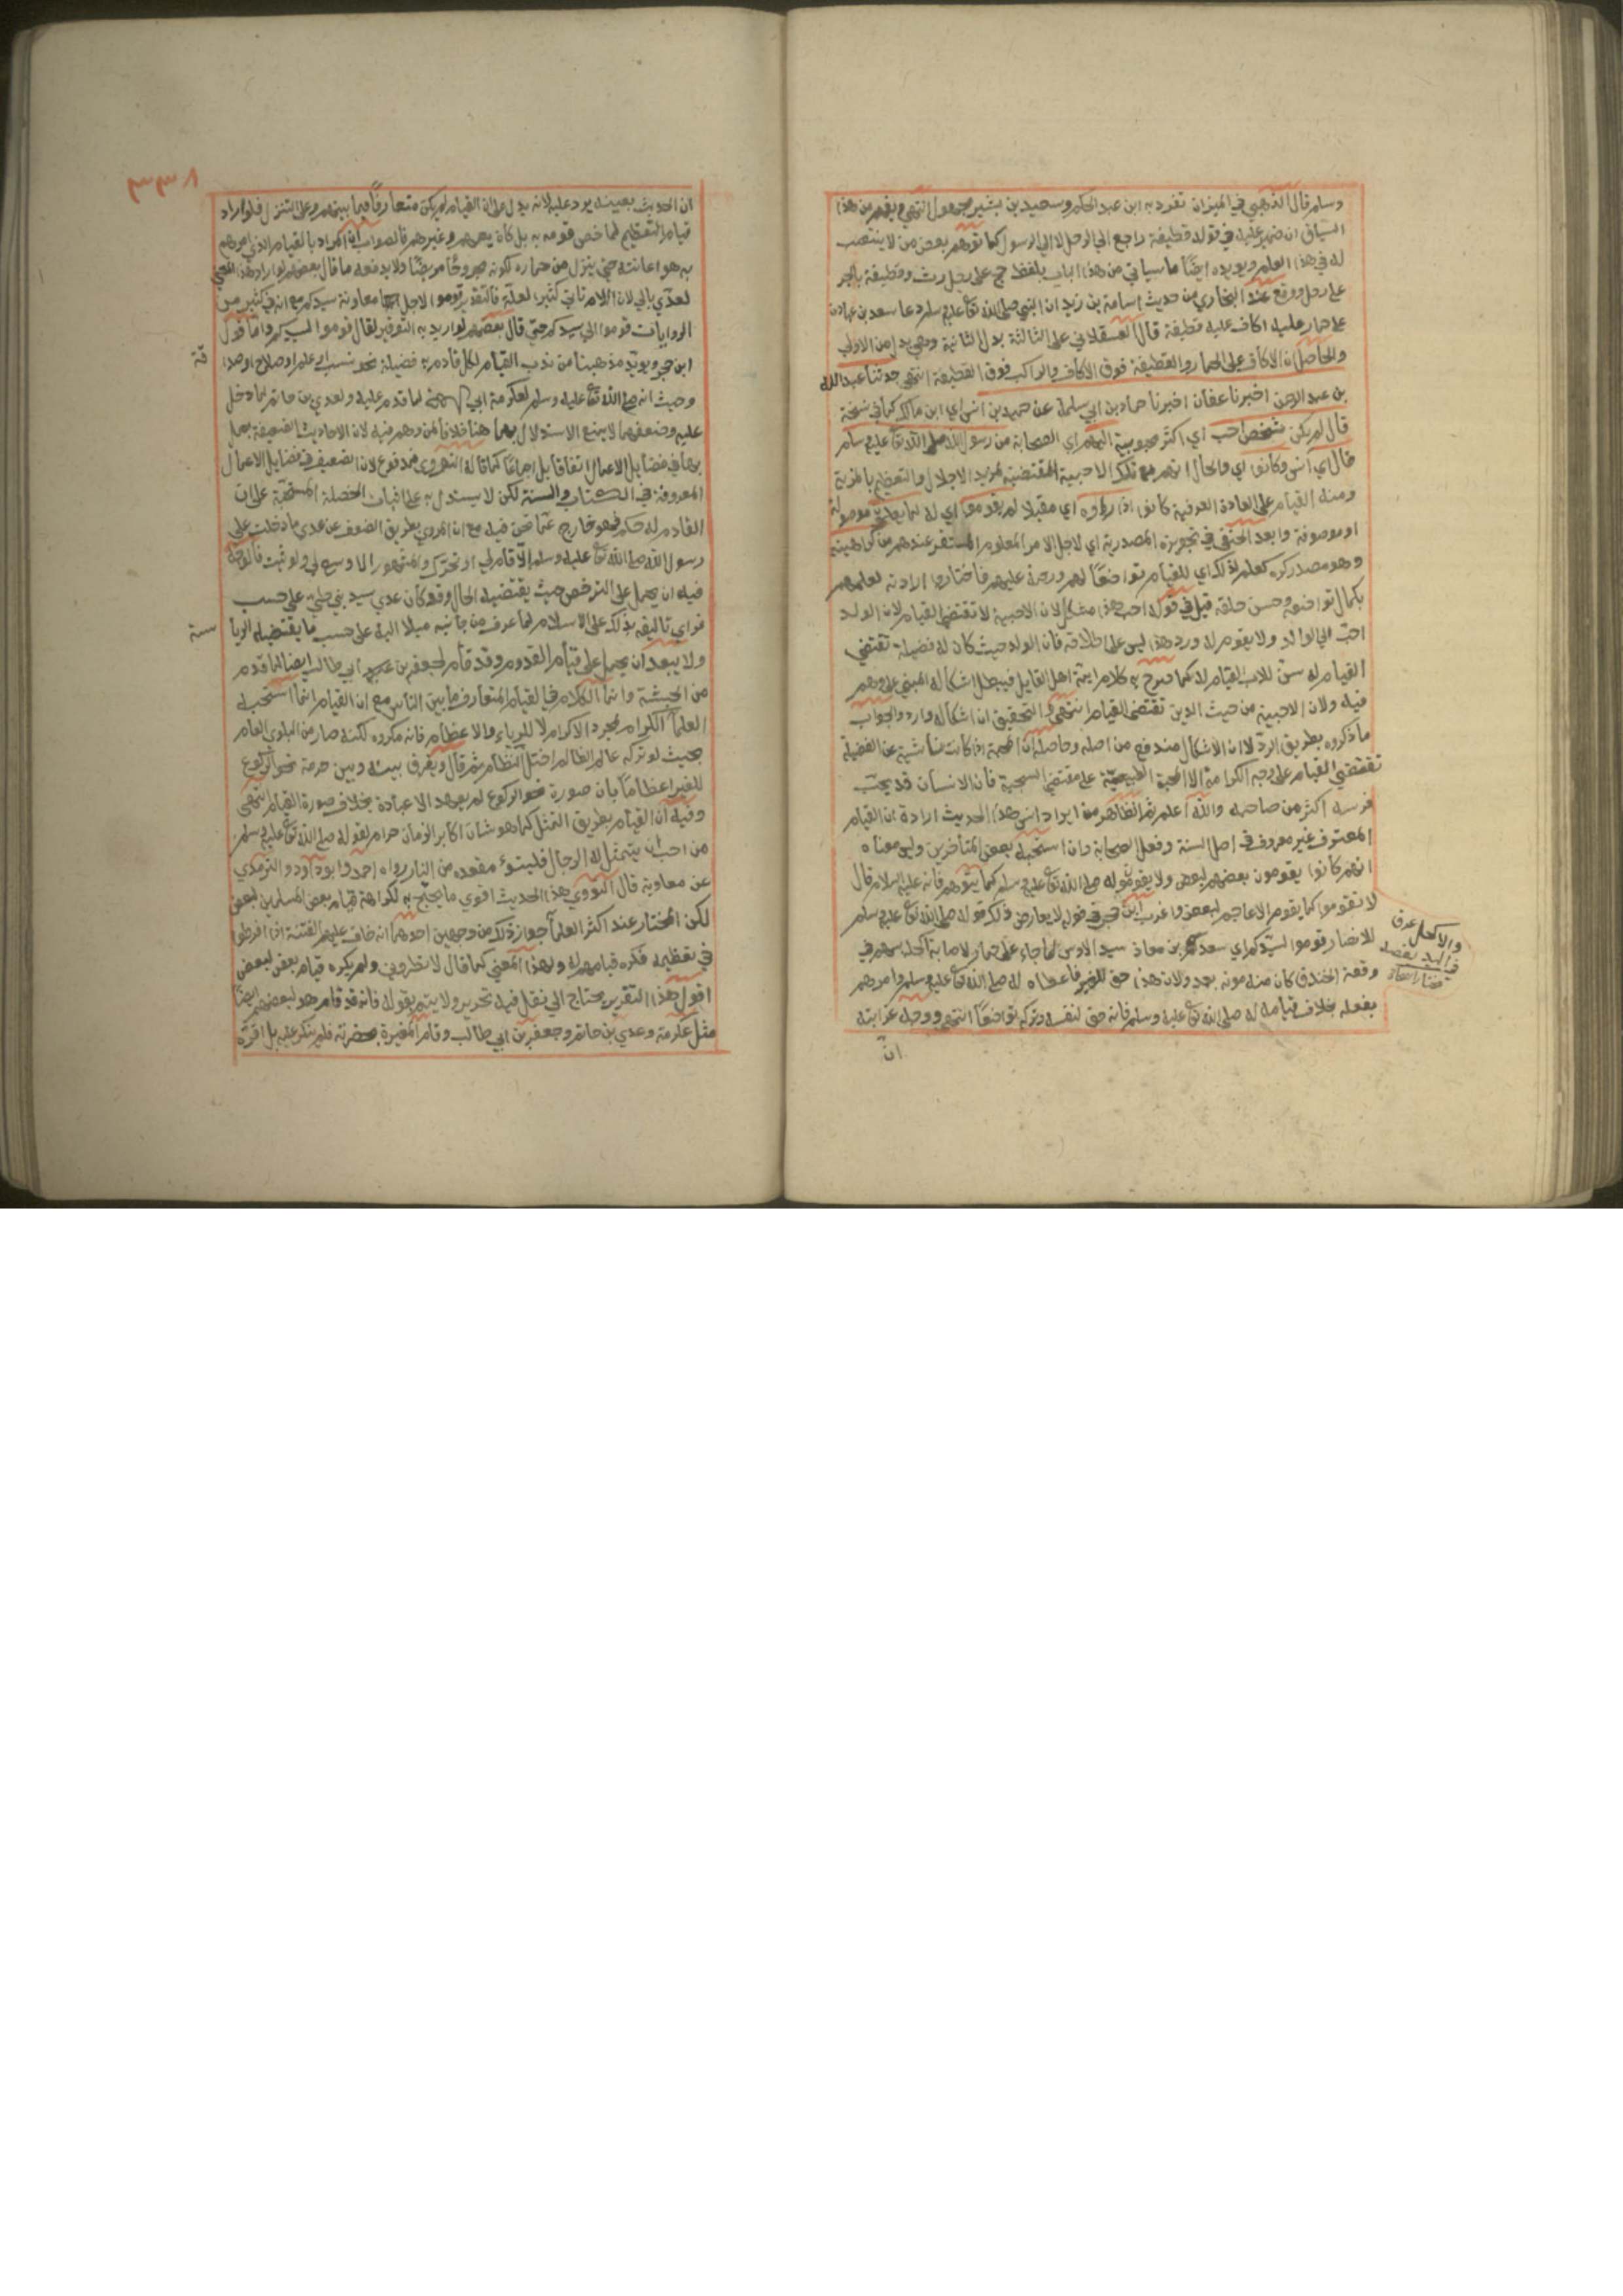 وسلم قال الذهبي في الميزان تفرد به ابن عبد الحكم وسعيد بن بشير مجهول انتهى ويفهم من هذا
السياق ان ضمير عليه في قوله قطيفة راجع الى الرحل لا الى الرسول كما توهم بعض من لا ينتصب
له في هذا العلم ويويده ايضًا ما سياتي من هذا الباب بلفظ حج على رحل رث وقطيفة بالجر
على رحل ووقع عند البخاري من حديث اسامة بن زيد ان النبي صلى الله تع عليه وسلم دعا سعد بن عبادة
على حمار عليه اكاف عليه قطيفة قال العسقلاني على الثالثة بدل الثانية وهي بدل من الاولى
والحاصل ان الاكاف على الحمار والقطيفة فوق الاكاف والراكب فوق القطيفة انتهى حدثنا عبد الله
بن عبد الرحمن اخبرنا عفان اخبرنا حماد بن ابي سلمة عن حميد بن انس اي ابن مالك كما في نسخة
قال لم يكن شخص احب اي اكثر محبوبية اليهم اي الصحابة من رسول الله صلى الله تع عليه وسلم
قال اي انس وكانوا اي والحال انهم مع تلك الاحبية المقتضية لمزيد الاجلال والتعظيم بالمزية
ومنه القيام على العادة العرفية كانوا اذا راوه اي مقبلا لم يقوموا اي له لما يعلمون موصولة
او موصوفة وابعد الحنفي في تجويزه المصدرية اي لاجل الامر المعلوم المستقر عندهم من كراهيته
وهو مصدر كره كعلم لذلك اي للقيام تواضعًا لهم ورحمة عليهم فاختاروا ارادته لعلمهم
بكمال تواضعه وحسن خلقه قيل في قوله احب هذا مشكل لان الاحبية لا تقتضي القيام لان الولد
احب الى الوالد ولا يقوم له ورد هذا ليس على اطلاقه فان الولد حيث كان له فضيلة تقتضي
القيام له سن للاب القيام له كما صرح به كلام ايمة اهل القايل فيبطل اشكاله المبني على وهم
فيه ولان الاحبية من حيث الدين تقتضي القيام انتهى والتحقيق ان اشكاله وارد والجواب
ما ذكروه بطريق الرد لا ان الاشكال مندفع من اصله وحاصله ان المحبة اذا كانت ناشية عن الفضيلة
تقتضي القيام على وجه الكرامة لا المحبة الطبيعية على مقتضى السجية فان الانسان قد يحب
فرسه اكثر من صاحبه والله اعلم ثم الظاهر من ايراد انس هذا الحديث ارادة ان القيام
المعتوف غير معروف في اصل السنة وفعل الصحابة وان استحبه بعض المتاخرين وليس معناه
انهم كانوا يقومون بعضهم لبعض ولا يقومون له صلى الله تع عليه وسلم كما يتوهم فانه عليه السلام قال
لا تقوموا كما يقوم الاعاجم لبعض واغرب ابن حجر في قوله لا يعارض ذلك قوله صلى الله تع عليه وسلم
للانصار قوموا لسيدكم اي سعد بن معاذ سيد الاوس لما جاء على حمار لاصابة اكحله سهم في
وقعة الخندق كان منه موته بعد ولان هذا حق للغير فاعطاه له صلى الله تع عليه وسلم وامرهم
بفعله بخلاف قيامه له صلى الله تع عليه وسلم فانه حق لنفسه وتركه تواضعًا انتهى ووجه غرابته
ان
والاكحل عرق
في اليد يفصد
مختار الصحاح
٣٣٨
ان الحديث بعينه يرد عليه لانه يدل على ان القيام لم يكن متعارفًا فيما بينهم وعلى التنزل فلو اراد
قيام التعظيم لما خص قومه به بل كان يعمهم وغيرهم فالصواب ان المراد بالقيام الذي امرهم
به هو اعانته حتى ينزل من حماره لكونه مجروحًا مريضًا ولا يدفعه ما قال بعض لو اراد هذا المعنى
لعدي بالى لان اللام تاتي كثيرا لعلة فالتقدير قوموا لاجل معاونة سيدكم مع انه في كثير من
الروايات قوموا الى سيدكم حتى قال بعضهم لو اريد به التوقير لقال قوموا لسيدكم واما قول
ابن حجر ويويد مذهبنا من ندب القيام لكل قادم به فضيلة نحو نسب او علم او صلاح او صدا
قة
وحيث انه صلى الله تع عليه وسلم لعكرمة ابي جهل لما قدم عليه ولعدي بن حاتم لما دخل
عليه وضعفهما لا يمنع الاستدلال بهما هنا خلافا لمن وهم فيه لان الاحاديث الضعيفة يعمل
بها في فضايل الاعمال اتفاقا بل اجماعًا كما قاله النووي فمدفوع لان الضعيف في فضايل الاعمال
المعروفة في الكتاب والسنة لكن لا يستدل به على اثبات الخصلة المستحبة على ان
القادم له حكم فهو خارج عما نحن فيه مع ان المروي بطريق الضعف عن عدي ما دخلت على
رسول الله صلى الله تع عليه وسلم الا قام لي او تحرك والمشهور الا وسع لي ولو ثبت فالوجه
فيه ان يحمل على الترخص حيث يقتضيه الحال وقد كان عدي سيد بني طي على حسب
فراى تاليفه بذلك على الاسلام لما عرف من جانبه ميلا اليه على حسب ما يقتضيه الريا
سة
ولا يبعد ان يحمل على قيام القدوم وقد قام لجعفر بن ابي طالب ايضا لما قدم
من الحبشة وانما الكلام في القيام المتعارف ما بين الناس مع ان القيام انما استحبه
العلما الكرام لمجرد الاكرام لا للرياء والاعظام فانه مكروه لكنه صار من البلوى العام
بحيث لو تركه عالم لظالم اختل النظام ثم قال ويفرق بينه وبين حرمة نحو الركوع
للغير اعظامًا بان صورة نحو الركوع لم يعهد الا عبادة بخلاف صورة القيام انتهى
وفيه ان القيام بطريق التمثل كما هو شان اكابر الزمان حرام لقوله صلى الله تع عليه وسلم
من احب ان يتمثل له الرجال فليتبوء مقعده من النار رواه احمد وابو داود والترمذي
عن معاوية قال النووي هذا الحديث اقوى ما يحتج به لكراهة قيام بعض المسلمين لبعض
لكن المختار عند اكثر العلما جواز ذلك من وجهين احدهما انه خاف عليهم الفتنة اذا افرطوا
في تعظيمه فكره قيامهم له ولهذا المعنى كما قال لا تطروني ولم يكره قيام بعض لبعض
اقول هذا التقرير يحتاج الى نقل فيه تحرير ولا يتم بقوله فانه قد قام هو لبعضهم ايضًا
مثل عكرمة وعدي بن حاتم وجعفر بن ابي طالب وقام المغيرة بحضرته فلم ينكر عليه بل اقره